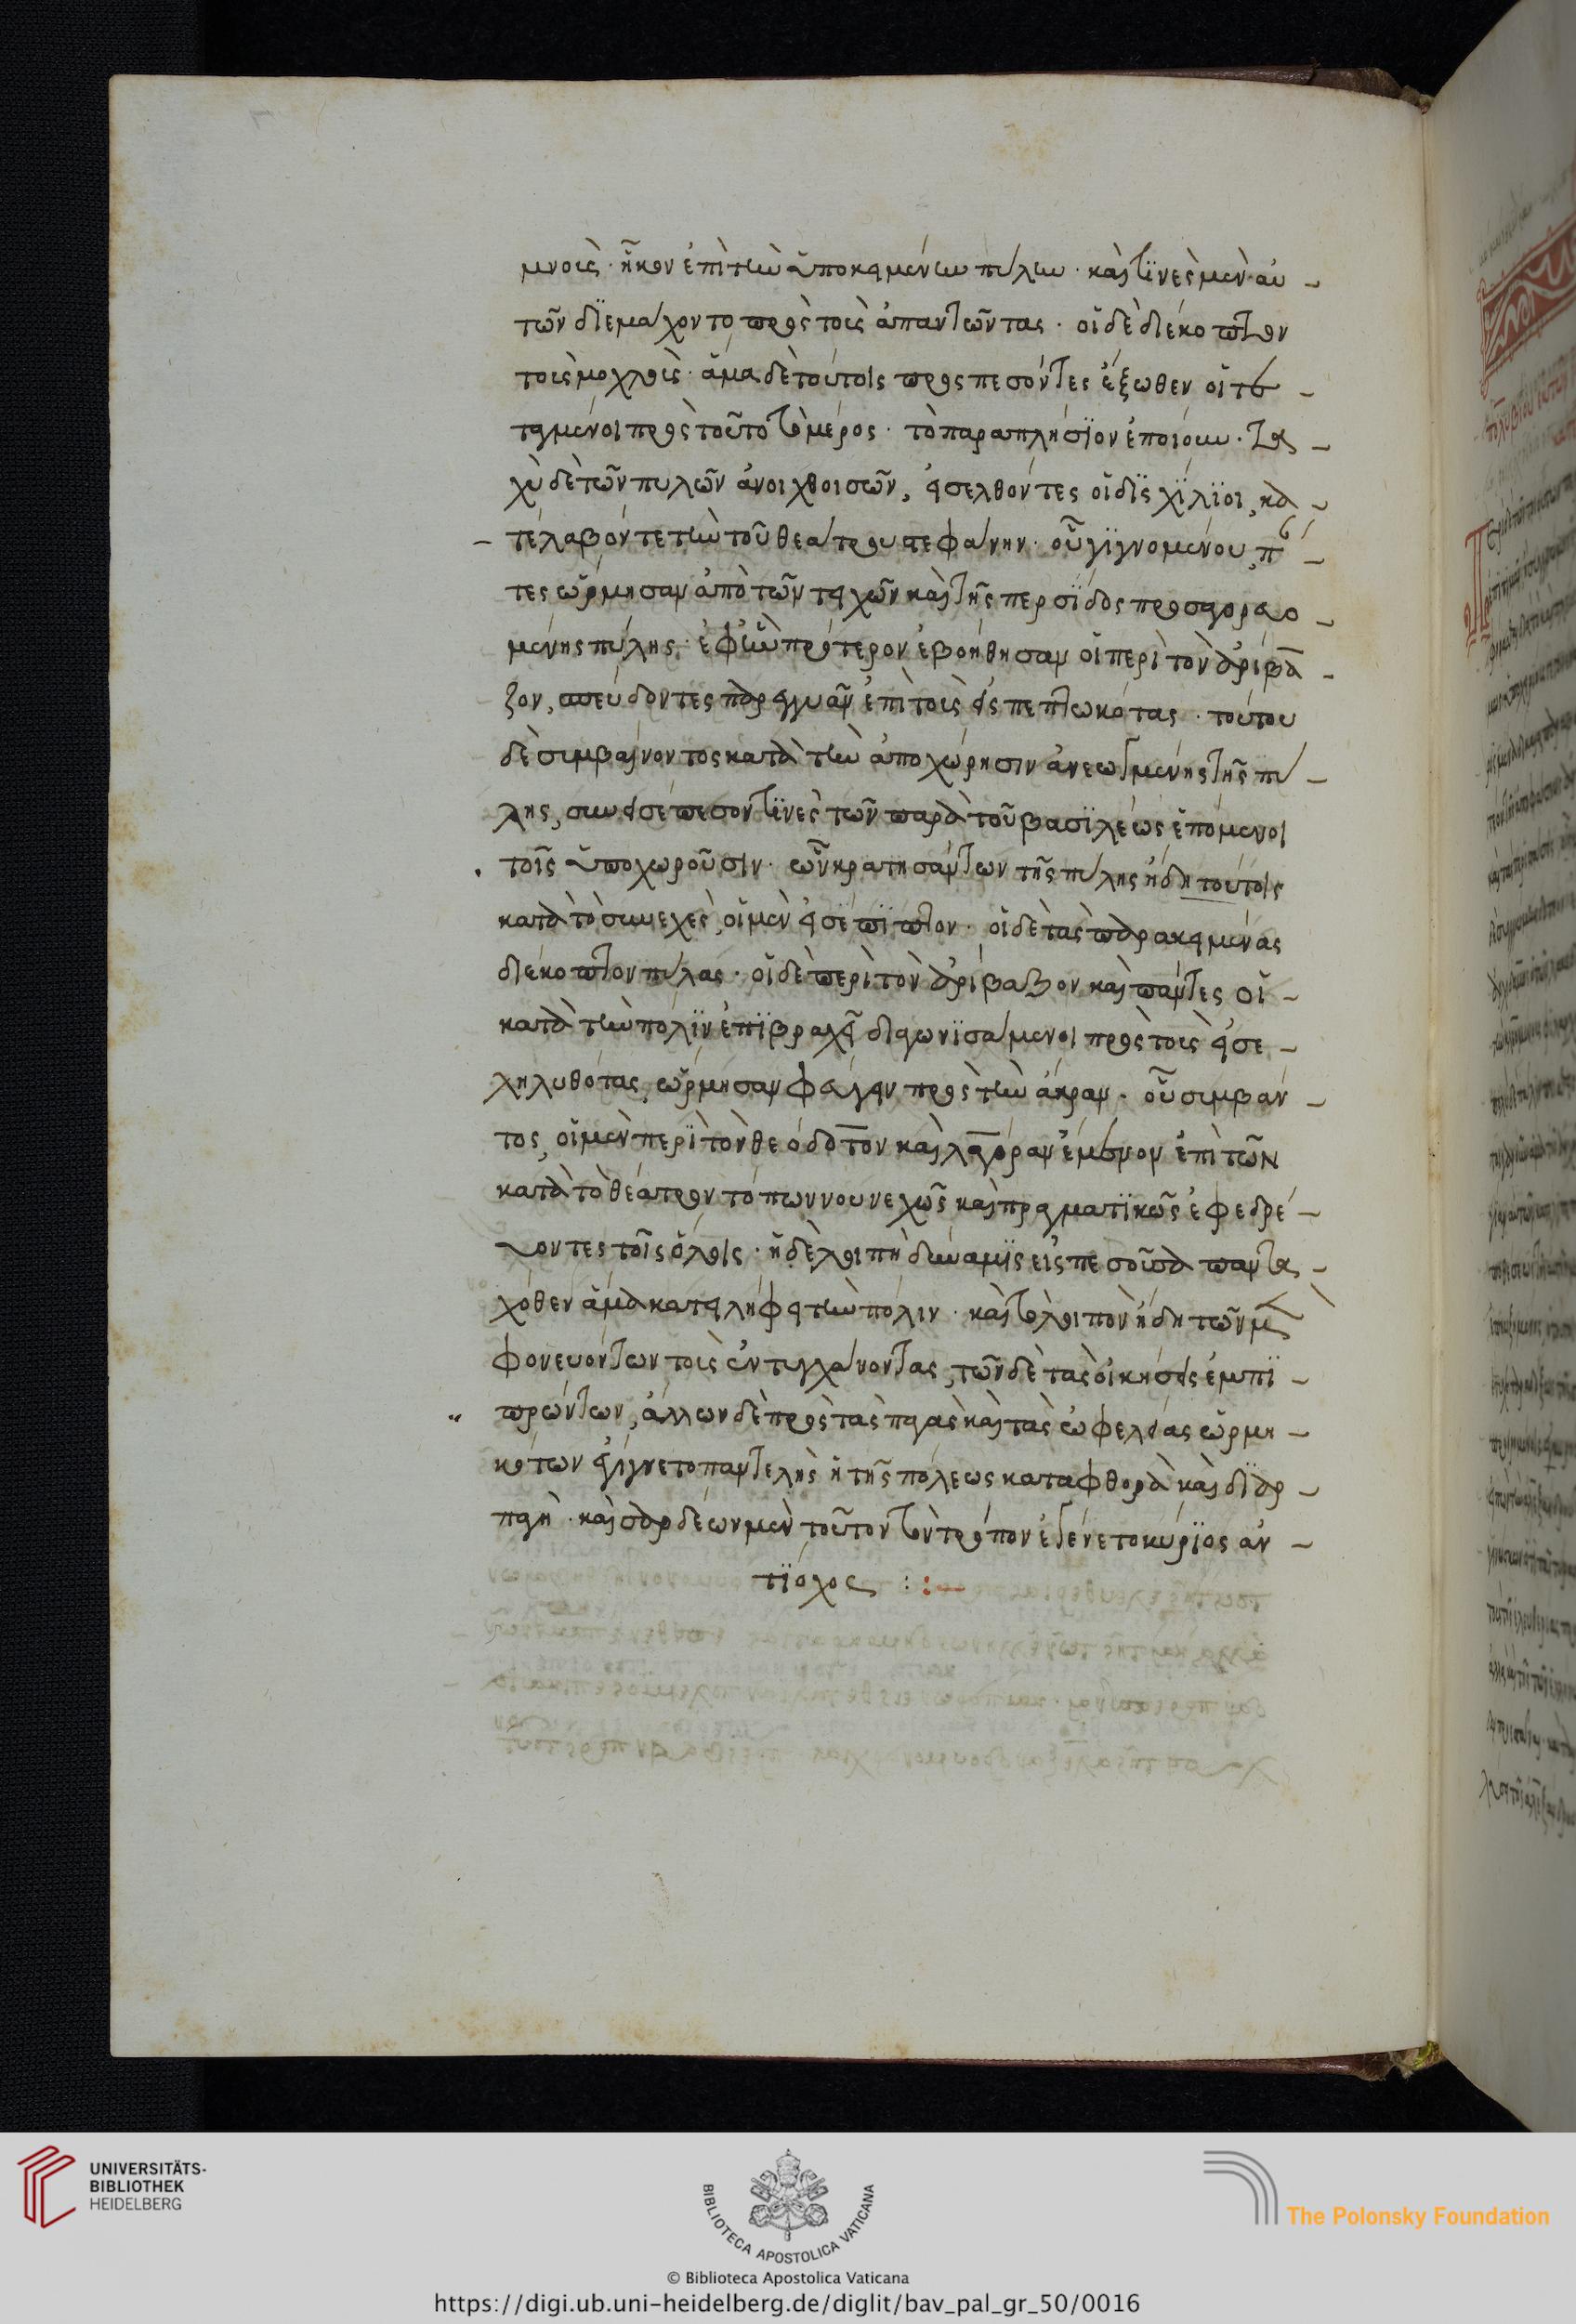 μένους. ἧκον ἐπὶ τὴν ὑποκειμένην πύλην. καὶ τινὲς μὲν αὐ-
τῶν διεμάχοντο πρὸς τοὺς ἀπαντῶντας. οἱ δὲ διέκοπτον
τοὺς μοχλούς. ἅμα δὲ τούτοις προσπεσόντες ἔξωθεν οἱ τε-
ταγμένοι πρὸς τοῦτο τὸ μέρος. τὸ παραπλήσιον ἐποίουν. τα-
χὺ δὲ τῶν πυλῶν ἀνοιχθεισῶν, εἰσελθόντες οἱ δισχίλιοι, κα-
τελάβοντο τὴν τοῦ θεάτρου στεφάνην. οὗ γιγνομένου, πάν-
τες ὥρμησαν ἀπὸ τῶν τειχῶν καὶ τῆς περσίδος προσαγορευο-
μένης πύλης. ἐφ' ἣν πρότερον ἐβοήθησαν οἱ περὶ τὸν ἀρίβα-
ζον, σπεύδοντες παρεγγυᾶν ἐπὶ τοὺς εἰσπεπτωκότας. τούτου
δὲ συμβαίνοντος κατὰ τὴν ἀποχώρησιν ἀνεωγμένης τῆς πύ-
λης, συνεισέπεσον τινὲς τῶν παρὰ τοῦ βασιλέως ἑπόμενοι
τοῖς ὑποχωροῦσιν. ὧν κρατησάντων τῆς πύλης ἤδη τούτοις
κατὰ τὸ συνεχὲς, οἱ μὲν εἰσέπιπτον. οἱ δὲ τὰς παρακειμένας
διέκοπτον πύλας. οἱ δὲ περὶ τὸν ἀρίβαζον καὶ πάντες οἱ
κατὰ τὴν πόλιν ἐπὶ βραχὺ διαγωνισάμενοι πρὸς τοὺς εἰσε-
ληλυθότας, ὥρμησαν φεύγειν πρὸς τὴν ἄκραν. οὗ συμβάν-
τος, οἱ μὲν περὶ τὸν θεόδοτον καὶ λαγόραν ἔμενον ἐπὶ τῶν
κατὰ τὸ θέατρον τόπων νουνεχῶς καὶ πραγματικῶς ἐφεδρεύ-
οντες τοῖς ὅλοις. ἡ δὲ λοιπὴ δύναμις εἰσπεσοῦσα πανταχ-
χόθεν ἅμα κατειλήφει τὴν πόλιν. καὶ τὸ λοιπὸν ἤδη τῶν μὲν
φονευόντων τοὺς ἐντυγχάνοντας, τῶν δὲ τὰς οἰκήσεις ἐμπι-
πρώντων, ἄλλων δὲ πρὸς τὰς παγὰς καὶ τὰς ὠφελείας ὡρμη-
κότων ἐγίγνετο παντελὴς ἡ τῆς πόλεως καταφθορὰ καὶ διαρ-
παγή. καὶ σάρδεων μὲν τοῦτον τὸν τρόπον ἐγένετο κύριος ἀν-
τίοχος :
UNIVERSITÄTS-
BIBLIOTHEK
HEIDELBERG
BIBLIOTECA APOSTOLICA VATICANA
The Polonsky Foundation
© Biblioteca Apostolica Vaticana
https://digi.ub.uni-heidelberg.de/diglit/bav_pal_gr_50/0016